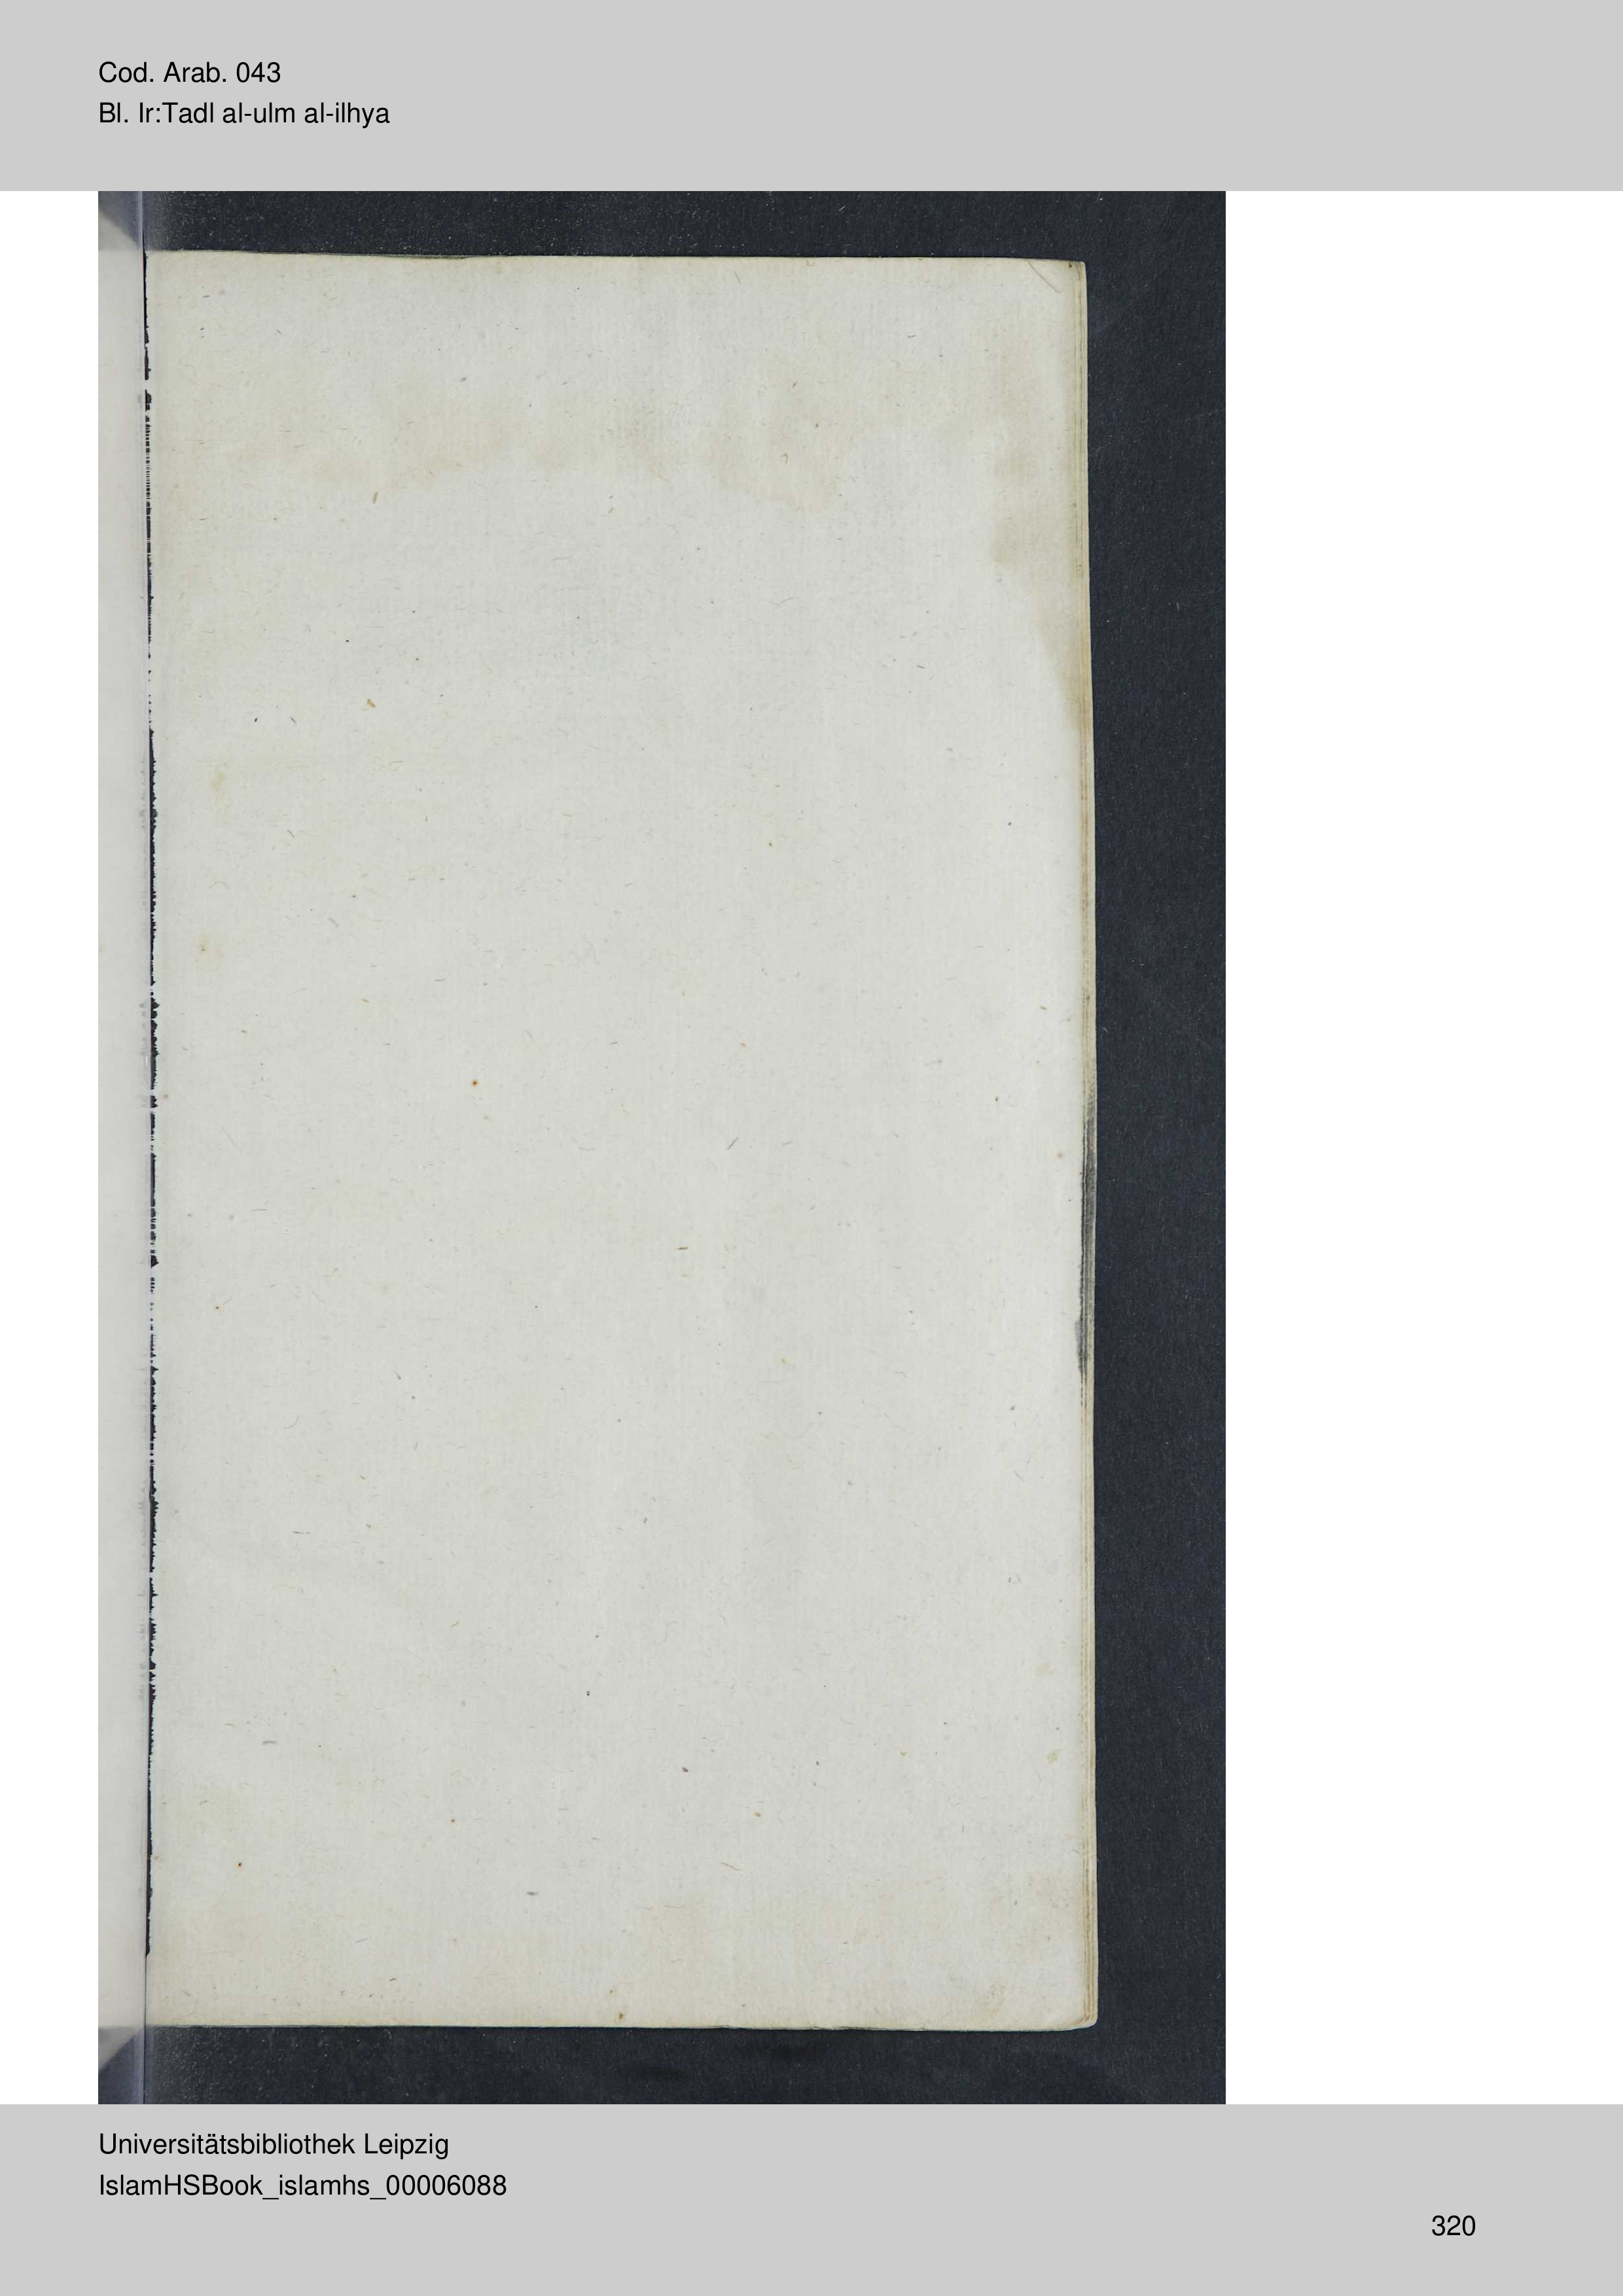 Cod. Arab. 043
Bl. Ir:Tadl al-ulm al-ilhya
Universitätsbibliothek Leipzig
IslamHSBook_islamhs_00006088
320